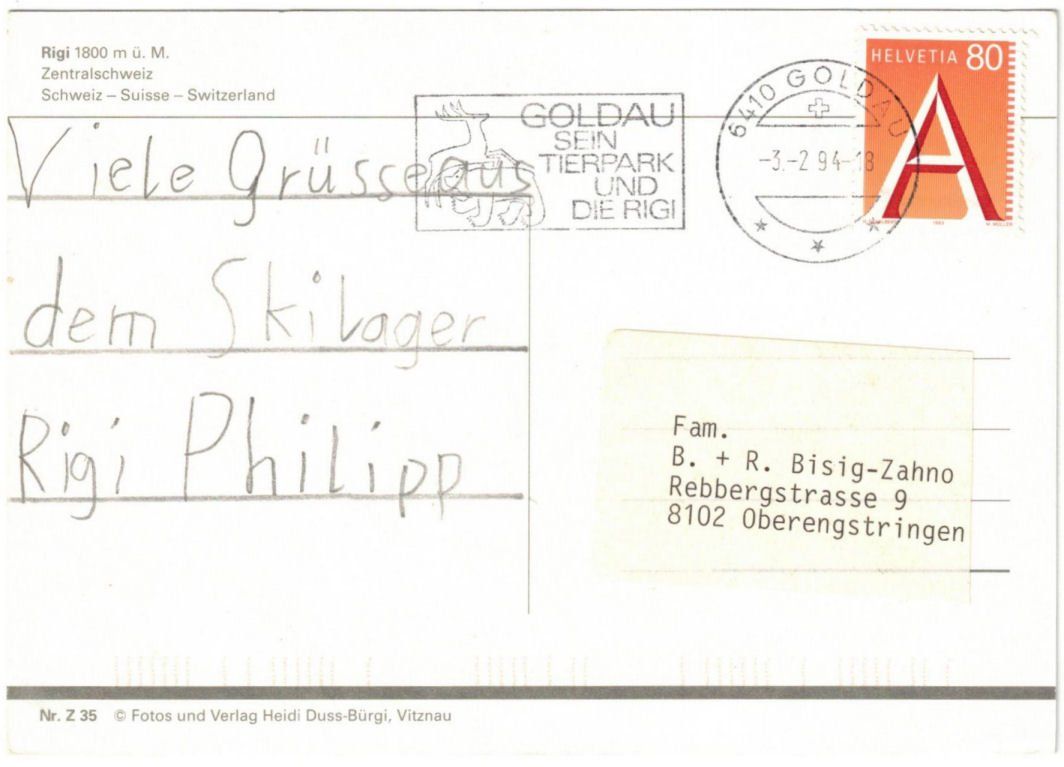 Rigi 1800 m ü. M.
Zentralschweiz
Schweiz – Suisse – Switzerland
HELVETIA 80
A
6410 GOLDAU
-3.-2 94-18
GOLDAU
SEIN
TIERPARK
UND
DIE RIGI
Viele Grüsse aus
dem Skilager
Rigi Philipp
Fam.
B. + R. Bisig-Zahno
Rebbergstrasse 9
8102 Oberengstringen
Nr. Z 35 © Fotos und Verlag Heidi Duss-Bürgi, Vitznau